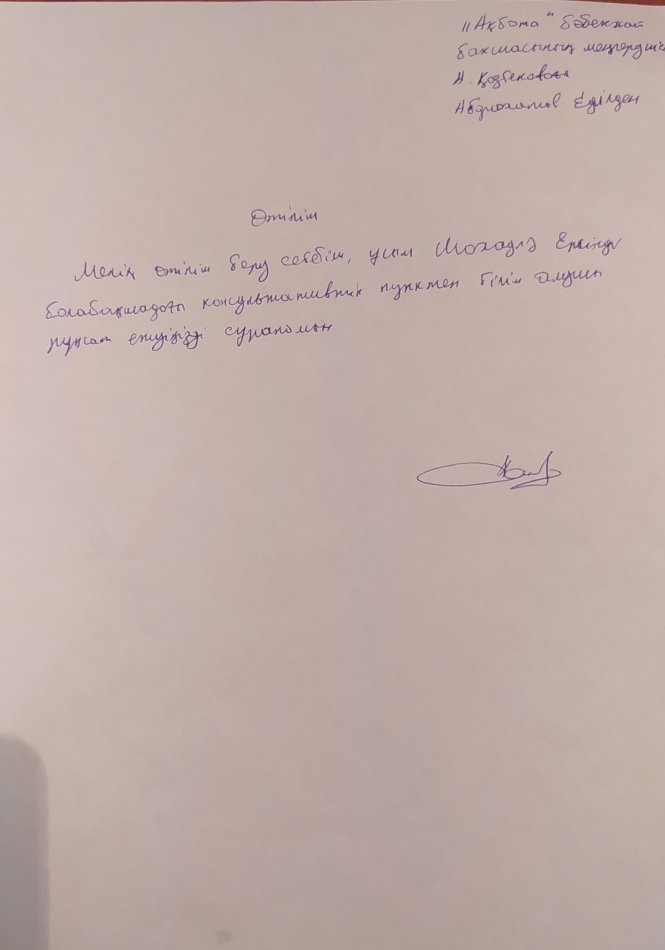 "Ақбота" бөбекжай
бақшасының меңгерушісі
Абдиохапов Еділден
Өтініш
Менің өтініш беру себебім, ұлым Ерсінұлы
балабақшадағы консультативтік пунктен білім алуына
рұқсат етуіңізді сұраймын